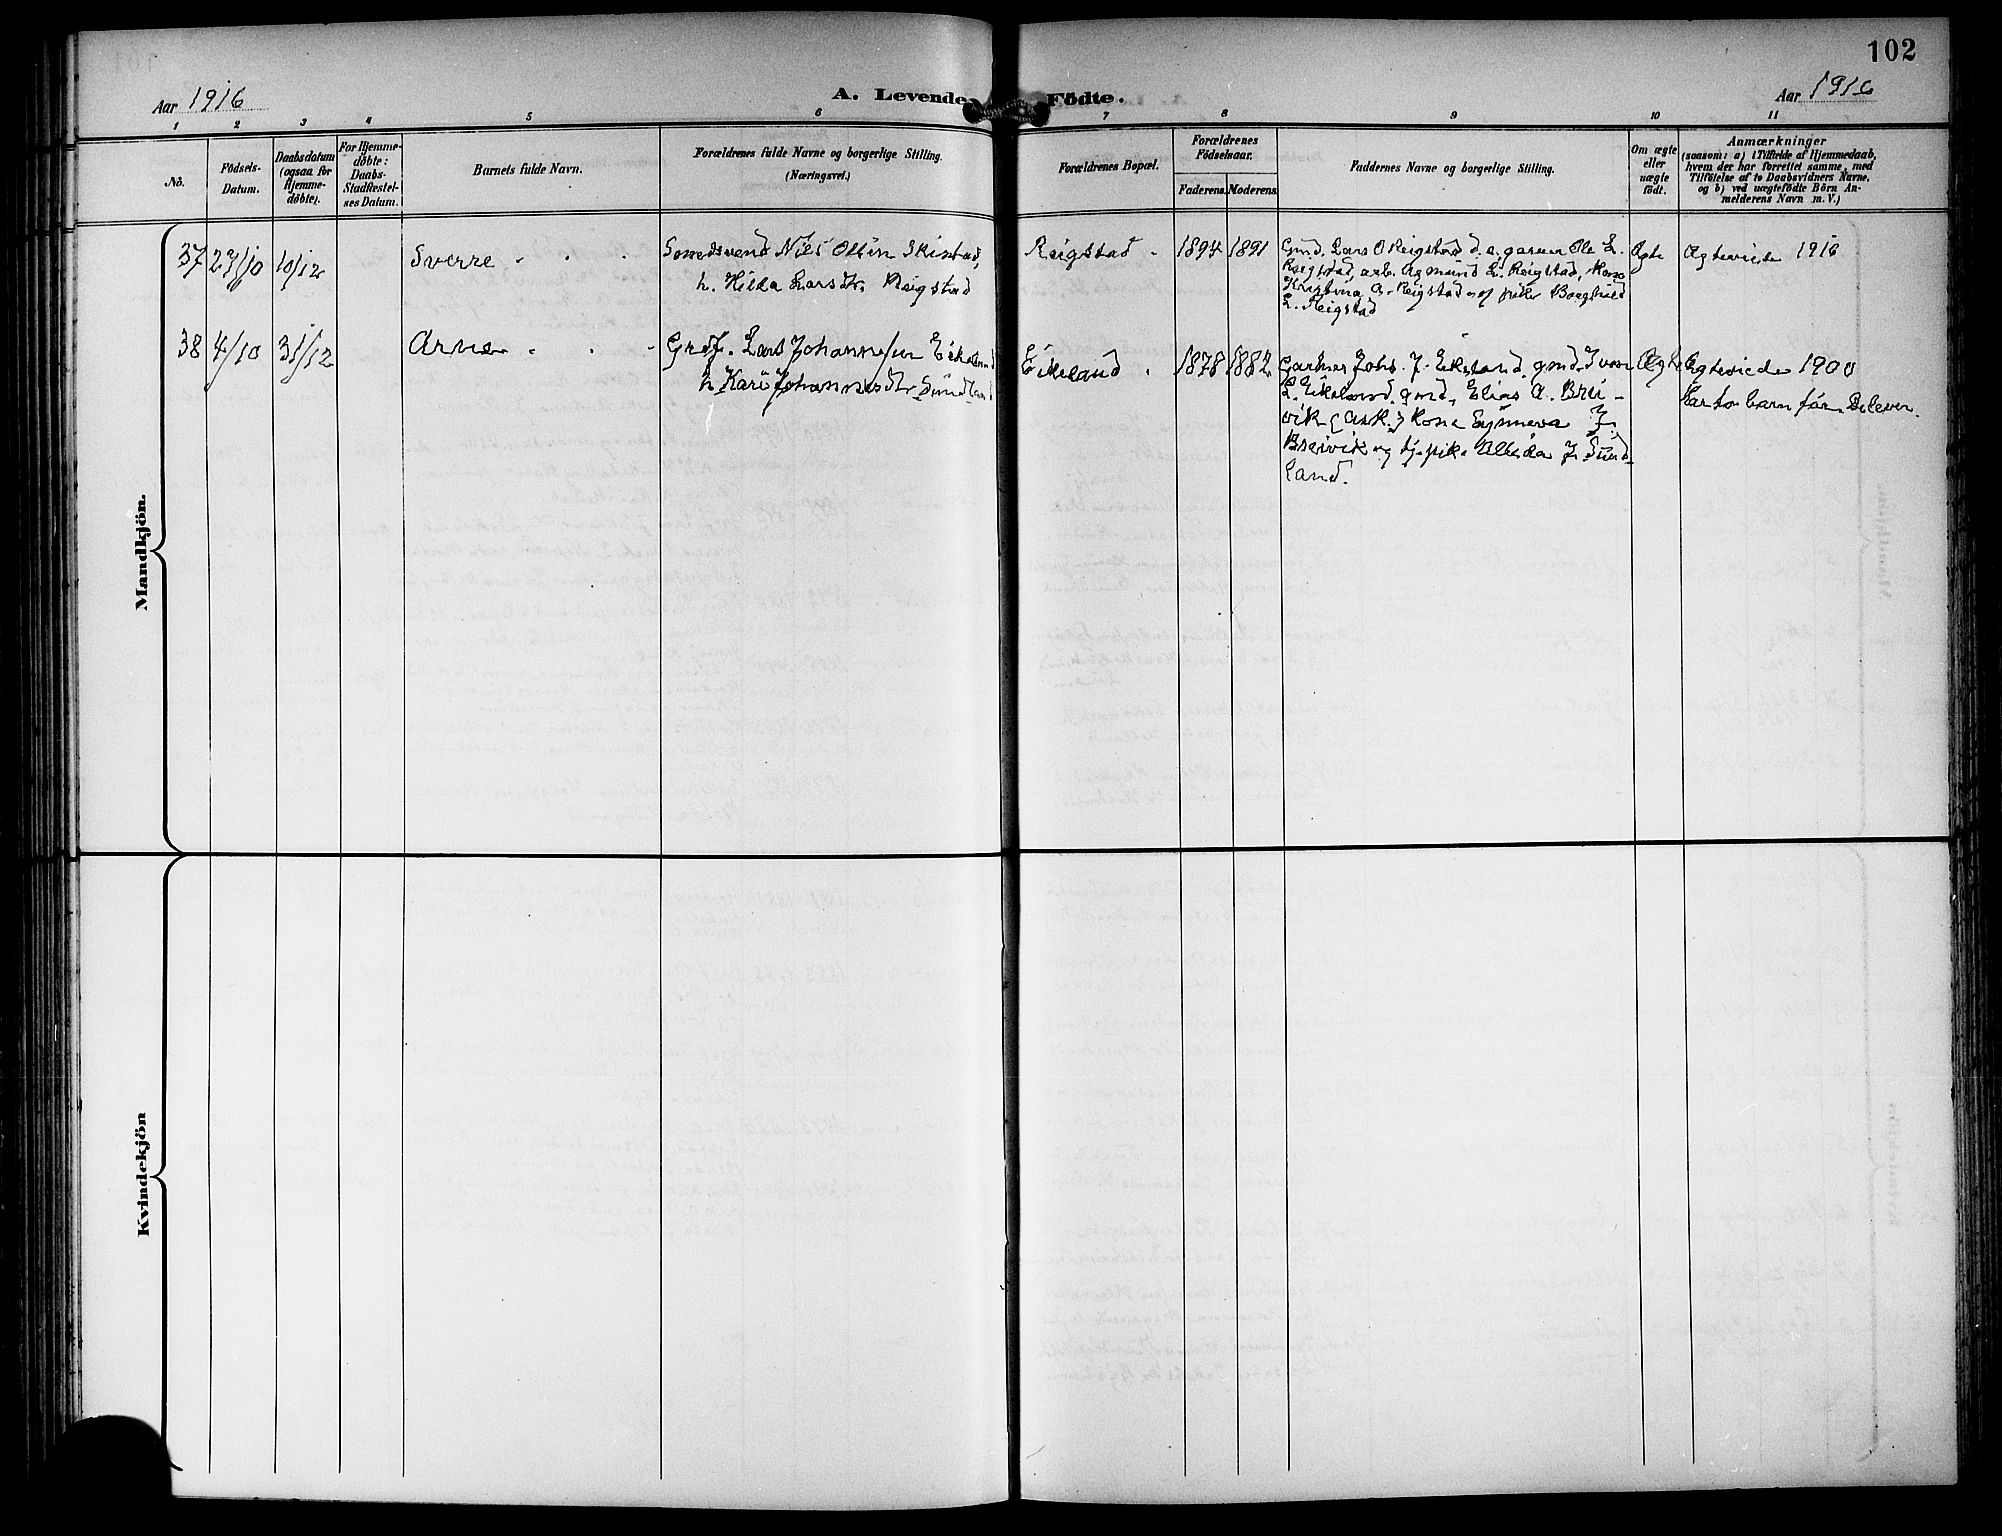 102
Aar 1916
A. Levende Födte.
Aar 1916
1 2 3 4 5 6 7 8 9 10 11
No.
Födsels-
Datum.
Daabsdatum
(ogsaa for
Hjemme-
döbte).
For Hjemme-
döbte:
Daabs-
Stadfæstel-
ses Datum.
Barnets fulde Navn.
Forældrenes fulde Navne og borgerlige Stilling.
(Næringsvei.)
Forældrenes Bopæl.
Forældrenes
Födselsaar.
Faderens. Moderens.
Faddernes Navne og borgerlige Stilling.
Om ægte
eller
uægte
födt.
Anmærkninger
(saasom: a) i Tilfælde af Hjemmedaab,
hvem der har forrettet samme, med
Tilföielse af to Daabsvidners Navne,
og b) ved uægtefödte Börn An-
melderens Navn m. V.)
Mandkjön.
37 27/10 10/12 Sverre
Smedsvend Nils Olsen Skistad,
h. Hilda Larsdtr. Reigstad
Reigstad 1894 1891
Gmd. Lars O Reigstad d.e. garsun Ole L.
Reigstad, arb. Agmund L. Reigstad, Kone
Kristina A. Reigstad og pike Borghild
L. Reigstad
Ægte Ægteviede 1916
38 4/10 31/12 Arne
Grdf. Lars Johannessen Eikeland
h. Kari Johannesdtr. Sundland
Eikeland 1878 1882
Garver Johs. J. Eikeland, gmd. Ivar
L. Eikeland, gmd. Elias A. Brei-
vik (Ask.) Kone Synneva J.
Breivik og tj. pike Alida J. Sund-
land.
Ægte Ægteviede 1900
Har to barn før. De lever.
Kvindekjön